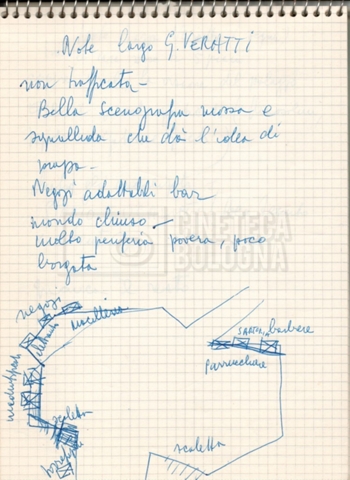 Note largo G. VERATTI
non trafficata -
Bella scenografia mossa e
squallida che dà l'idea di
Negozi adattabili bar
mondo chiuso -
molto periferia povera, poco
borgata
CINETECA
BOLOGNA
negozi
macelleria
barbiere
Parrucchiere
scaletta
scaletta